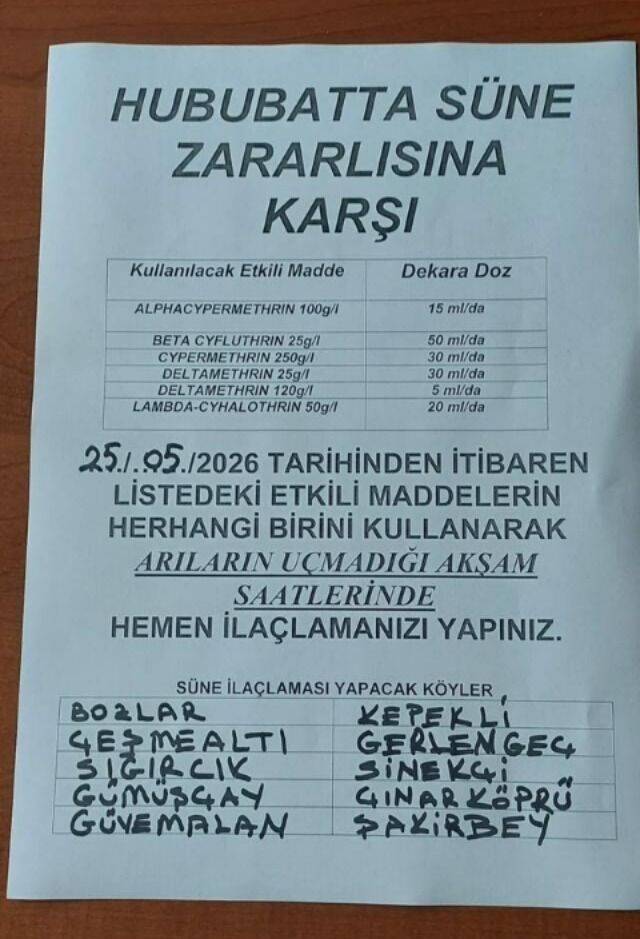 HUBUBATTA SÜNE
ZARARLISINA
KARŞI
Kullanılacak Etkili Madde Dekara Doz
ALPHACYPERMETHRIN 100g/l 15 ml/da
BETA CYFLUTHRIN 25g/l 50 ml/da
CYPERMETHRIN 250g/l 30 ml/da
DELTAMETHRIN 25g/l 30 ml/da
DELTAMETHRIN 120g/l 5 ml/da
LAMBDA-CYHALOTHRIN 50g/l 20 ml/da
25./.05./2026 TARİHİNDEN İTİBAREN
LİSTEDEKİ ETKİLİ MADDELERİN
HERHANGİ BİRİNİ KULLANARAK
ARILARIN UÇMADIĞI AKŞAM
SAATLERİNDE
HEMEN İLAÇLAMANIZI YAPINIZ.
SÜNE İLAÇLAMASI YAPACAK KÖYLER
BOZLAR KEPEKLİ
ÇEŞMEALTI GERLENGEÇ
SIĞIRCIK SİNEKÇİ
GÜMÜŞÇAY ÇINARKÖPRÜ
GÜVEMALAN ŞAKİRBEY